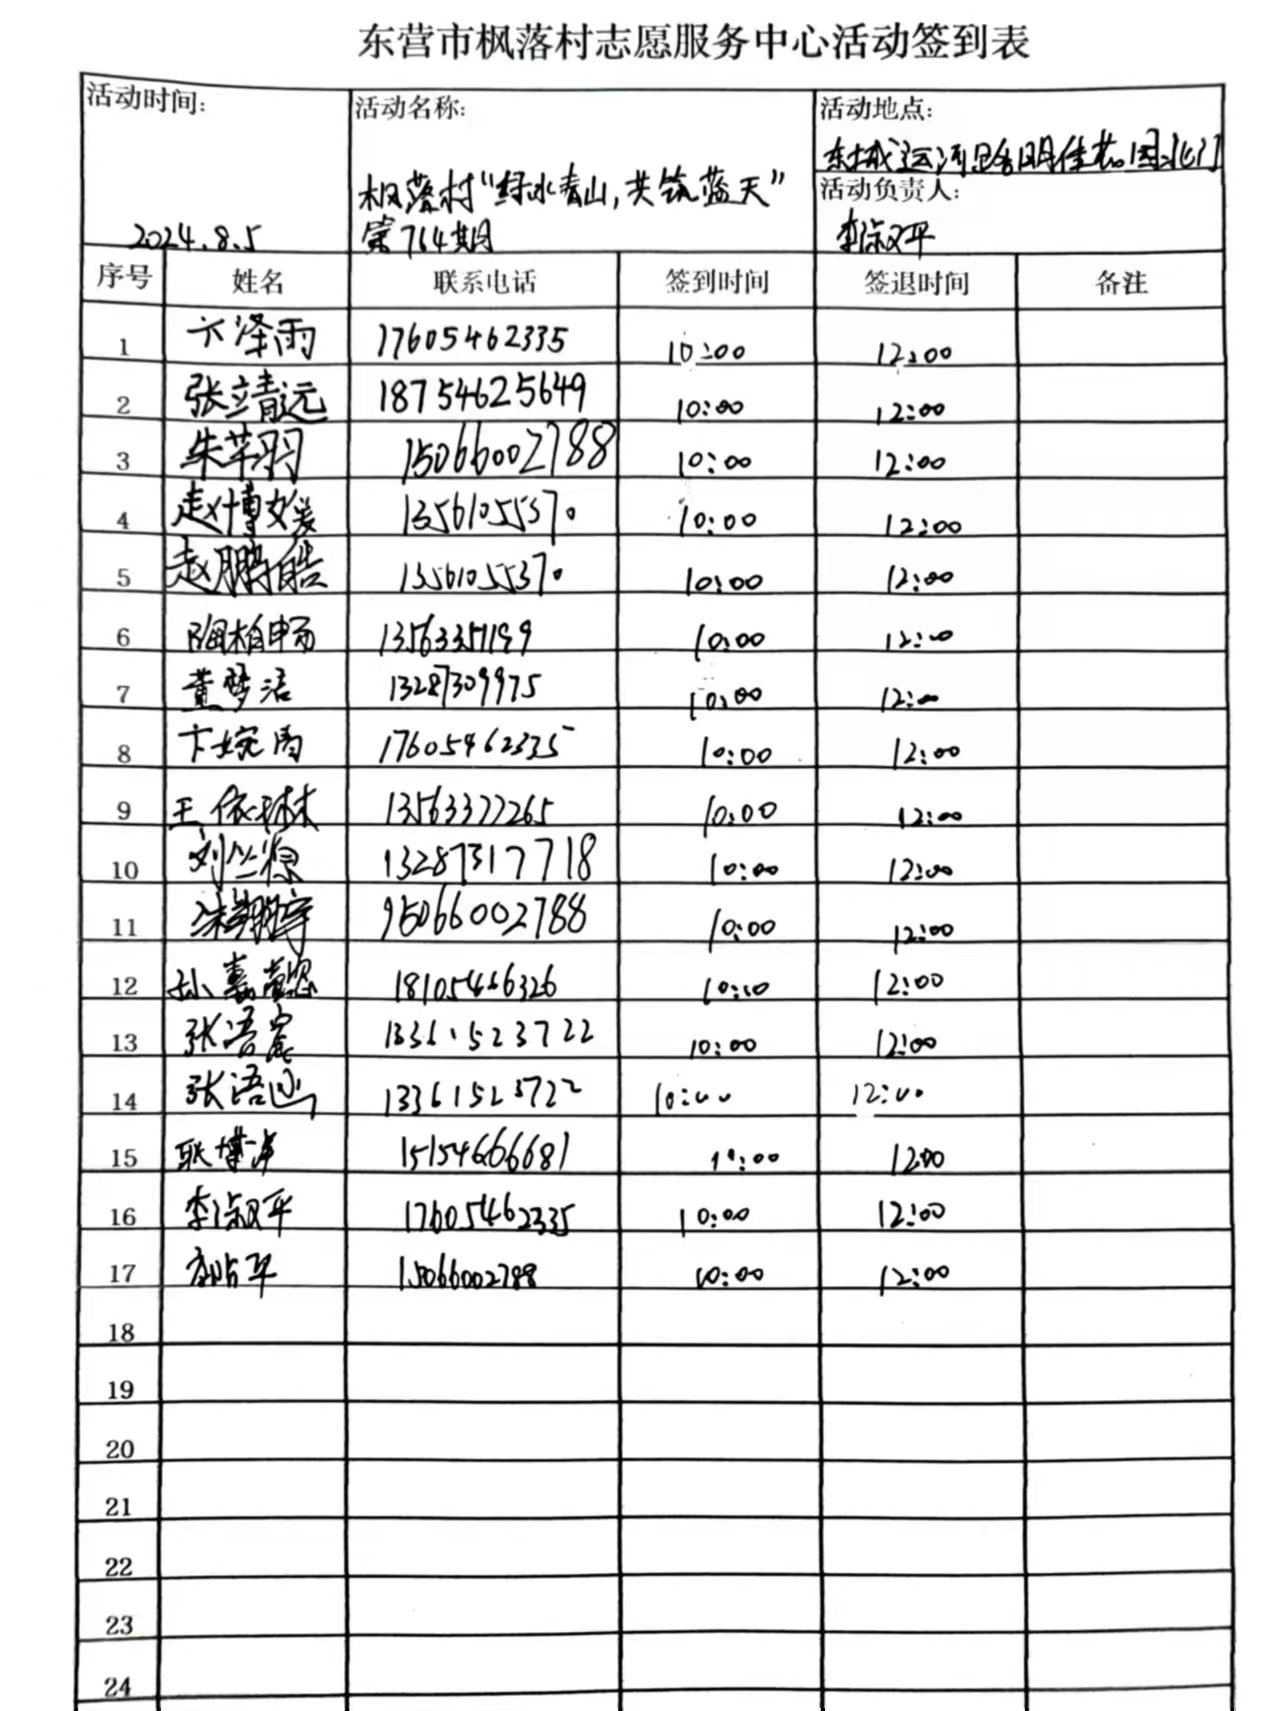 东营市枫落村志愿服务中心活动签到表
活动时间:
2024.8.5
活动名称:
枫落村“绿水青山,共筑蓝天”
第764期
活动地点:
东城运河昆明佳花园北门
活动负责人:
李淑平
序号 姓名 联系电话 签到时间 签退时间 备注
1 卞泽雨 17605462335 10:00 12:00
2 张靖远 18754625649 10:00 12:00
3 朱芊羽 15066002788 10:00 12:00
4 赵博媛 13561055370 10:00 12:00
5 赵鹏皓 13561055370 10:00 12:00
6 陶柏畅 13563357199 10:00 12:00
7 董梦洁 13287309975 10:00 12:00
8 卞婉雨 17605462335 10:00 12:00
9 王依琳 13563377265 10:00 12:00
10 刘丛源 13287317718 10:00 12:00
11 15066002788 10:00 12:00
12 孙嘉懿 18105466326 10:00 12:00
13 张语宸 13361523722 10:00 12:00
14 张语迪 13361523722 10:00 12:00
15 耿博洋 15154666681 10:00 1200
16 李淑平 17605462335 10:00 12:00
17 15066002788 10:00 12:00
18
19
20
21
22
23
24